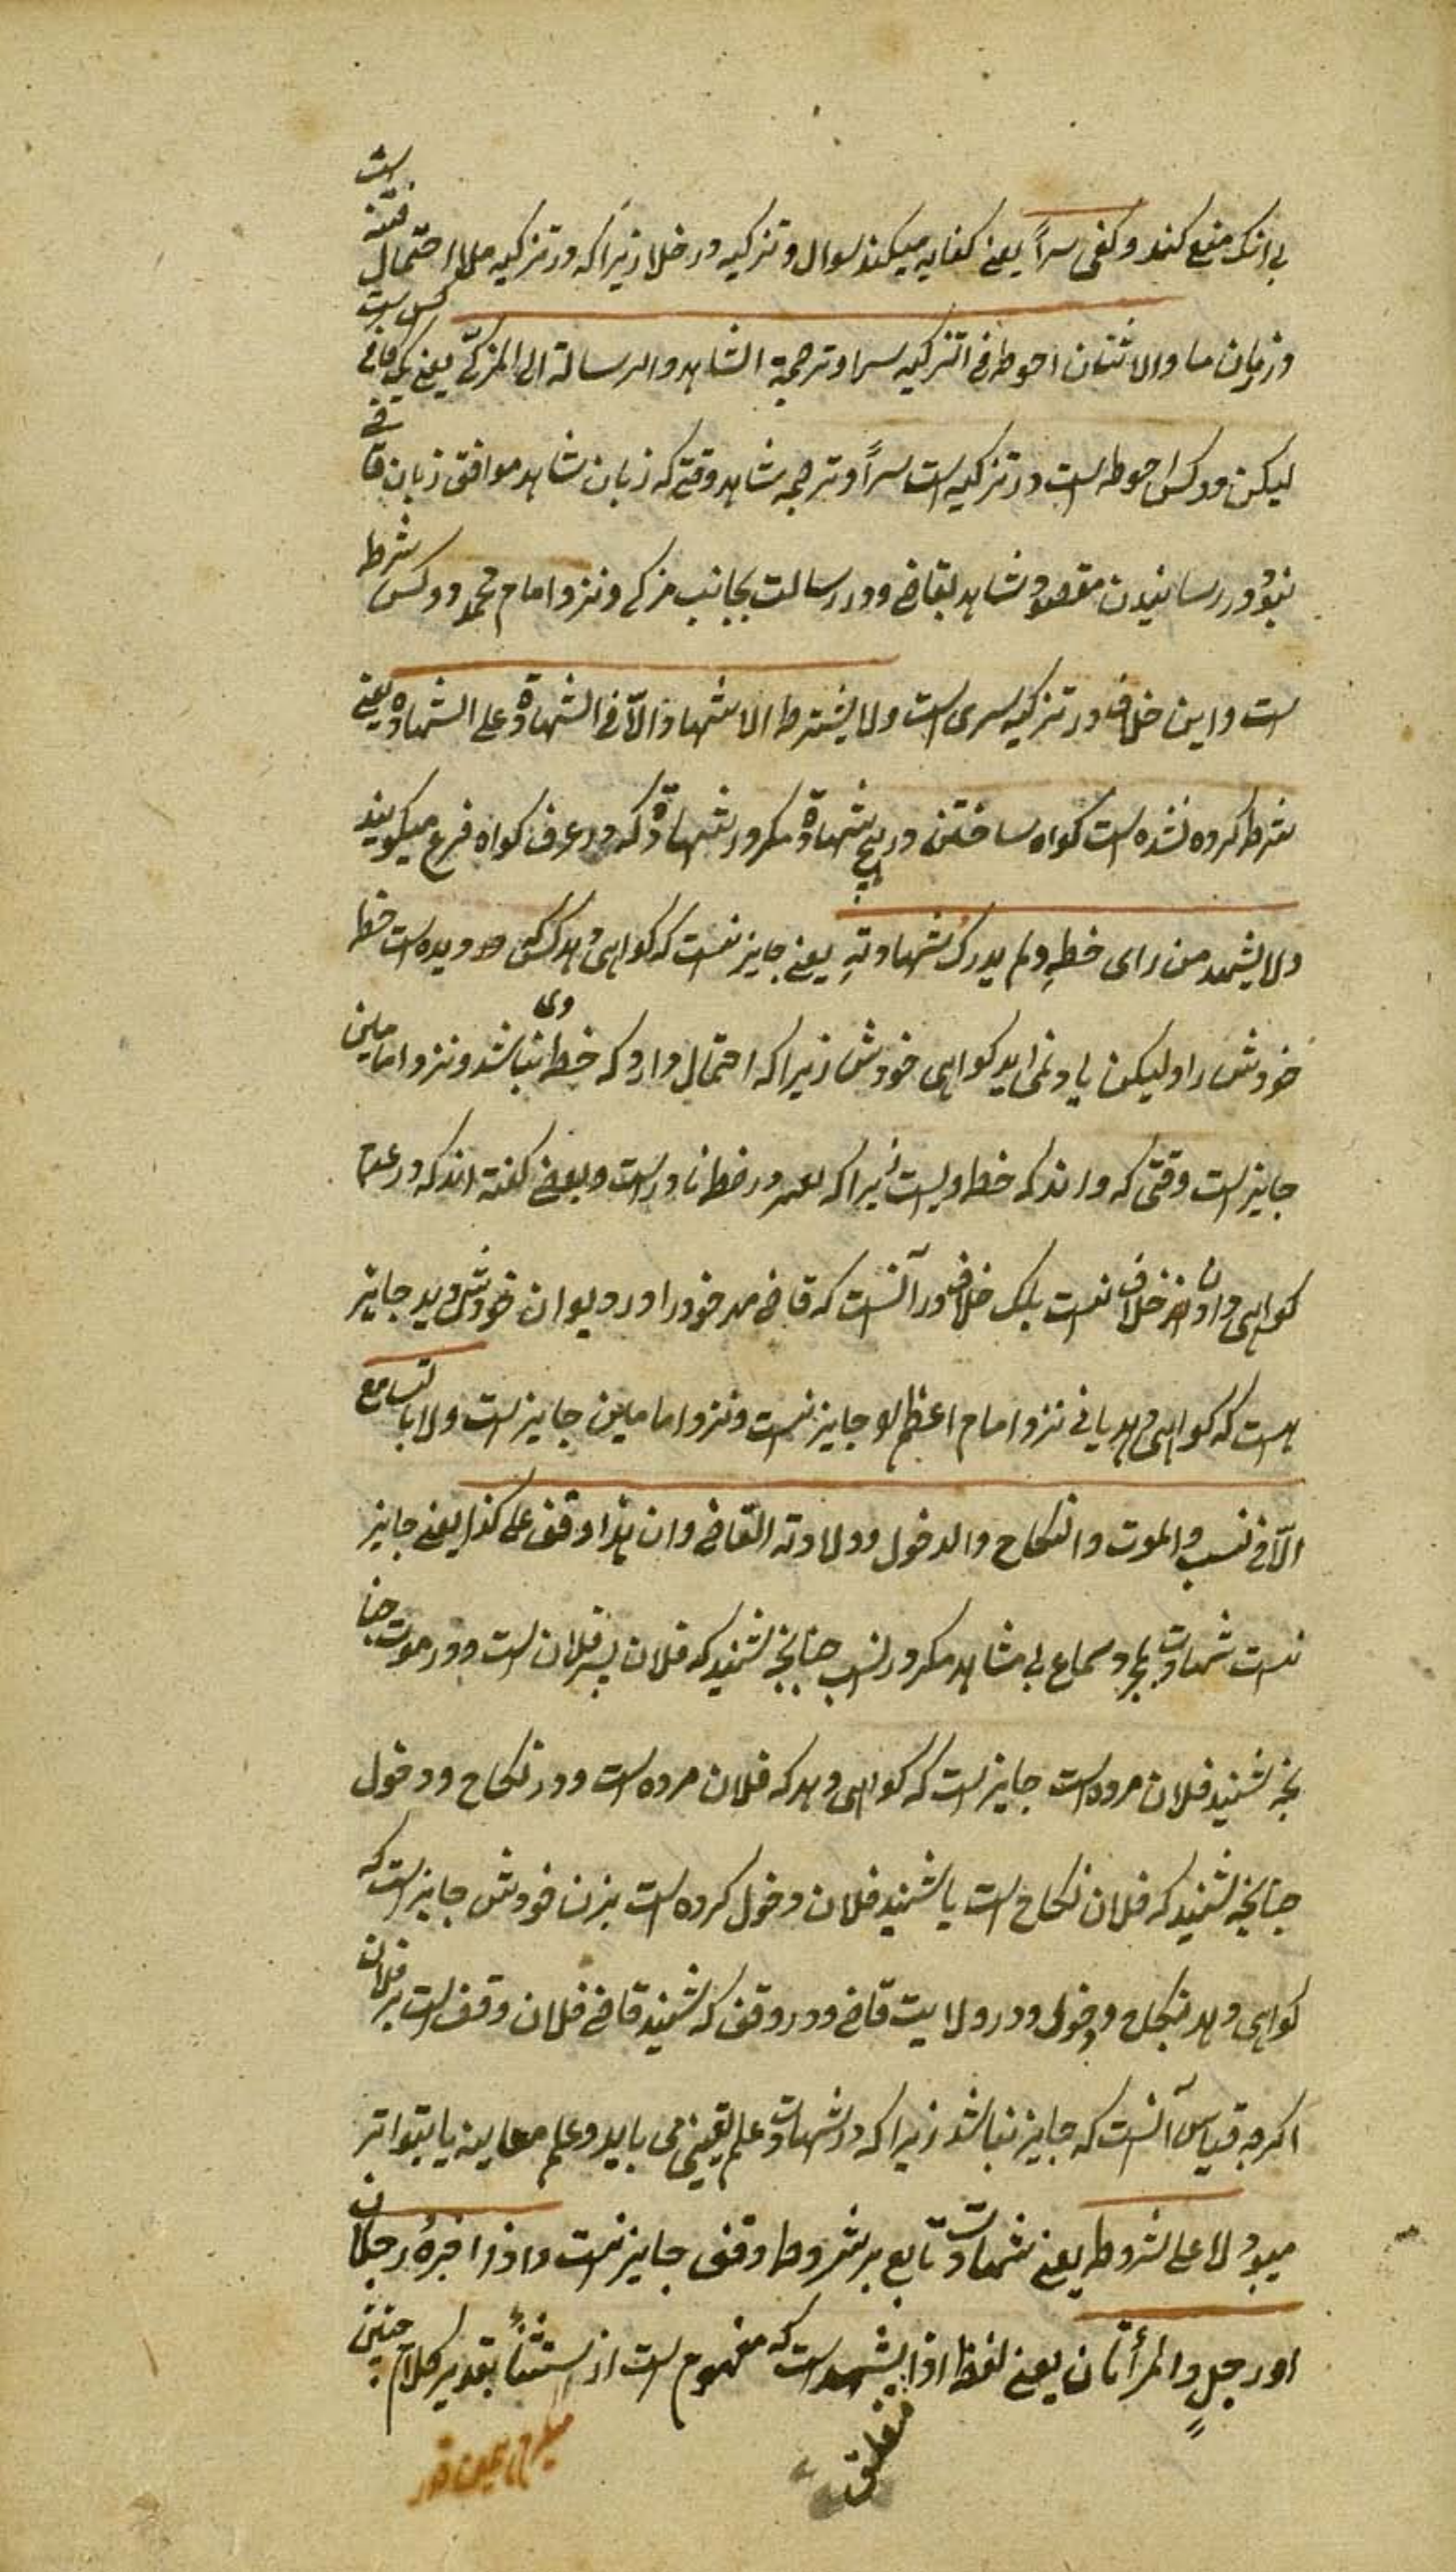 بی انک منع کند و کفی سراً یعنی کفایه میکند سوال و تزکیه در خلا زیرا که در تزکیه ملا احتمال فتنه است
در زمان ما و الاثنان احوط فی التزکیه سرا و ترجمة الشاهد و الرسالة الی المزکی یعنی یک کس است کافی
لیکن دو کس احوط است در تزکیه است سراً و ترجمه شاهد وقتی که زبان شاهد موافق زبان قاضی
نبود و در رسانیدن مقصود شاهد بقاضی و در رسالت بجانب مزکی و نزد امام محمد دو کس شرط
است و این خلاف در تزکیه سری است ولا یشترط الاشهاد الّا فی الشهادة علی الشهادة یعنی
شرط کرده نشده است کواه ساختن در هیچ شهادة مکر در شهادة که در عرف کواه فرع میکویند
ولا یشهد من رای خطهِ ولم یدرک شهادتهِ یعنی جایز نیست که کواهی دهد کس که دیده است خط
خودش را و لیکن یاد نمی اید کواهی خودش زیرا که احتمال دارد که خط وی نباشد و نزد امامین
جایز است وقتی که داند که خط ویست زیرا که در خط نادر است و بعضی کفته اند که در عدم
کواهی دادن خلاف نیست بلک خلاف در آنست که قاضی مهر خود را در دیوان خودش دید جایز
است که کواهی دهد یا نی نزد امام اعظم جایز نیست و نزد امامین جایز است ولا بالتسامع
الّا فی نسب و الموت و النکاح و الدخول و ولادته القاضی و ان هذا وقف علی کذا یعنی جایز
نیست شهادت بمجرد سماع بی مشاهد مکر در نسب چنانچه شنید که فلان پسر فلان است و در موت چنا
نچه شنید فلان مرده است جایز است که کواهی دهد که فلان مرده است و در نکاح و دخول
چنانچه شنید که فلان نکاح است یا شنید فلان دخول کرده است بزن خودش جایز است که
کواهی دهد بنکاح و دخول و در ولایت قاضی و در وقف که شنید قاضی فلان وقف است بر فلان
اکرچه قیاس آنست که جایز نباشد زیرا که در شهادت علم یقینی می باید و علم معاینه یا بتواتر
میبود لا علی شروط یعنی شهادت تابع بر شروط وقف جایز نیست و اذا اخبرهُ رجلان
او رجلٍ و المرأتان یعنی لفظ اذا یشهد است که مفهوم است از استثنأ بتقدیر کلام چنین
متعلق